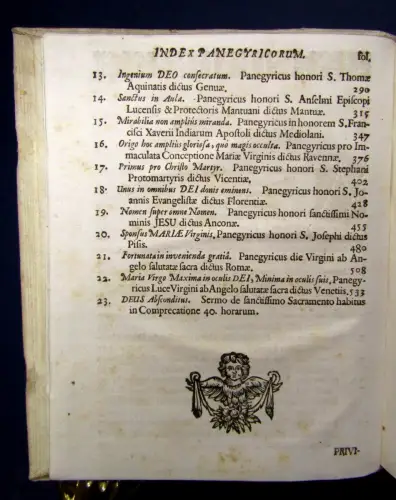 INDEX PANEGYRICORUM. fol.
13. Ingenium DEO consecratum. Panegyricus honori S. Thomæ
Aquinatis dictus Genuæ. 290
14. Sanctus in Aula. Panegyricus honori S. Anselmi Episcopi
Lucensis & Protectoris Mantuani dictus Mantuæ. 315
15. Mirabilia non amplius miranda. Panegyricus in honorem S. Fran-
cisci Xaverii Indiarum Apostoli dictus Mediolani. 347
16. Origo hoc amplius gloriosa, quo magis occulta. Panegyricus pro Im-
maculata Conceptione Mariæ Virginis dictus Ravennæ. 376
17. Primus pro Christo Martyr. Panegyricus honori S. Stephani
Protomartyris dictus Vicentiæ. 402
18. Unus in omnibus DEI donis eminens. Panegyricus honori S. Jo-
annis Evangelistæ dictus Florentiæ. 428
19. Nomen super omne Nomen. Panegyricus honori sanctissimi No-
minis JESU dictus Anconæ. 455
20. Sponsus MARIÆ Virginis, Panegyricus honori S. Josephi dictus
Pisis. 480
21. Fortunata in invenienda gratiâ. Panegyricus die Virgini ab An-
gelo salutatæ sacra dictus Romæ. 508
22. Maria Virgo Maxima in oculis DEI, Minima in oculis suis, Panegy-
ricus Luce Virgini ab Angelo salutatæ sacra dictus Venetiis. 533
23. DEUS Absconditus. Sermo de sanctissimo Sacramento habitus
in Comprecatione 40. horarum.
PRIVI-